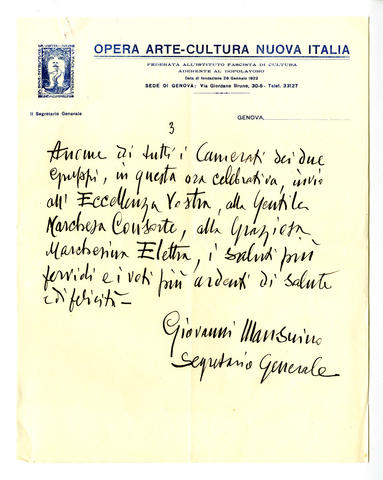 OPERA ARTE-CULTURA NUOVA ITALIA
FEDERATA ALL'ISTITUTO FASCISTA DI CULTURA
ADERENTE AL DOPOLAVORO
Data di fondazione 28 Gennaio 1922
SEDE DI GENOVA: Via Giordano Bruno, 30-5 - Telef. 33127
Il Segretario Generale
GENOVA,
3
A nome di tutti i Camerati dei due
gruppi, in questa ora celebrativa, invio
all' Eccellenza Vostra, alla Gentile
Marchesa Consorte, alla Graziosa
Marchesina Elettra, i saluti più
fervidi e i voti più ardenti di salute
e di felicità -
Giovanni
Segretario Generale